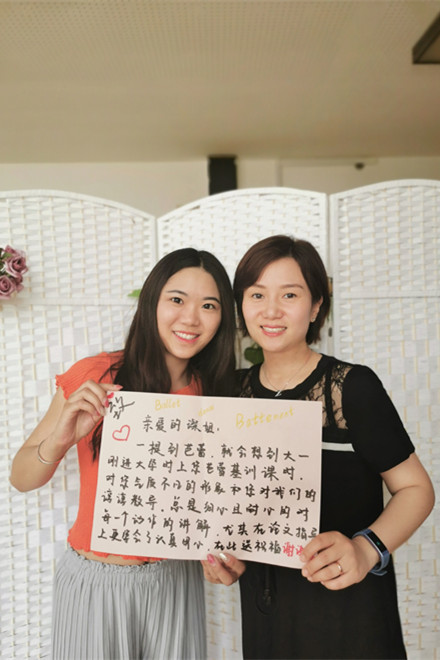 Ballet
Betterment
亲爱的深姐：
一提到芭蕾，就会想到大一
刚进大学时上您芭蕾基训课时，
对您气质不凡的形象和您对我们的
谆谆教导，总是细心且耐心的对
每一个动作的讲解，尤其在论文指导
上更体会了认真用心，在此送祝福谢谢